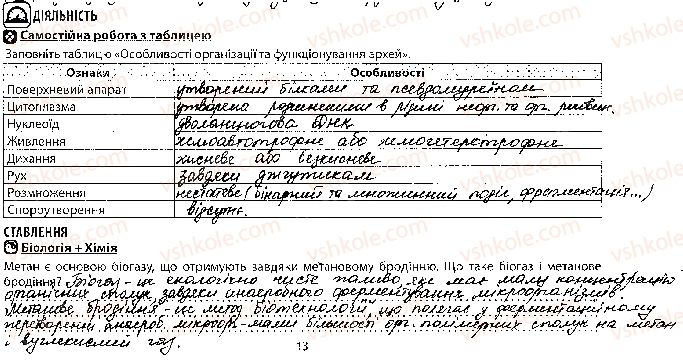 ДІЯЛЬНІСТЬ
Самостійна робота з таблицею
Заповніть таблицю «Особливості організації та функціонування архей».
Ознаки Особливості
Поверхневий апарат утворений білками та псевдомуреїном
Цитоплазма утворена розчиненими в рідині неорг. та орг. речовин.
Нуклеоїд дволанцюгова ДНК
Живлення хемоавтотрофне або хемогетеротрофне
Дихання кисневе або безкисневе
Рух завдяки джгутикам
Розмноження нестатеве (бінарний та множинний поділ, фрагментація...)
Спороутворення відсутнє.
СТАВЛЕННЯ
Біологія + Хімія
Метан є основою біогазу, що отримують завдяки метановому бродінню. Що таке біогаз і метанове
бродіння? Біогаз - це екологічно чисте паливо, що має малу концентрацію
органічних сполук завдяки анаеробного ферментування мікроорганізмів.
Метанове бродіння - це метод біотехнології, що полягає у ферментаційному
перетворенні анаероб. мікроорг-мами більшості орг. полімерних сполук на метан
і вуглекислий газ.
13